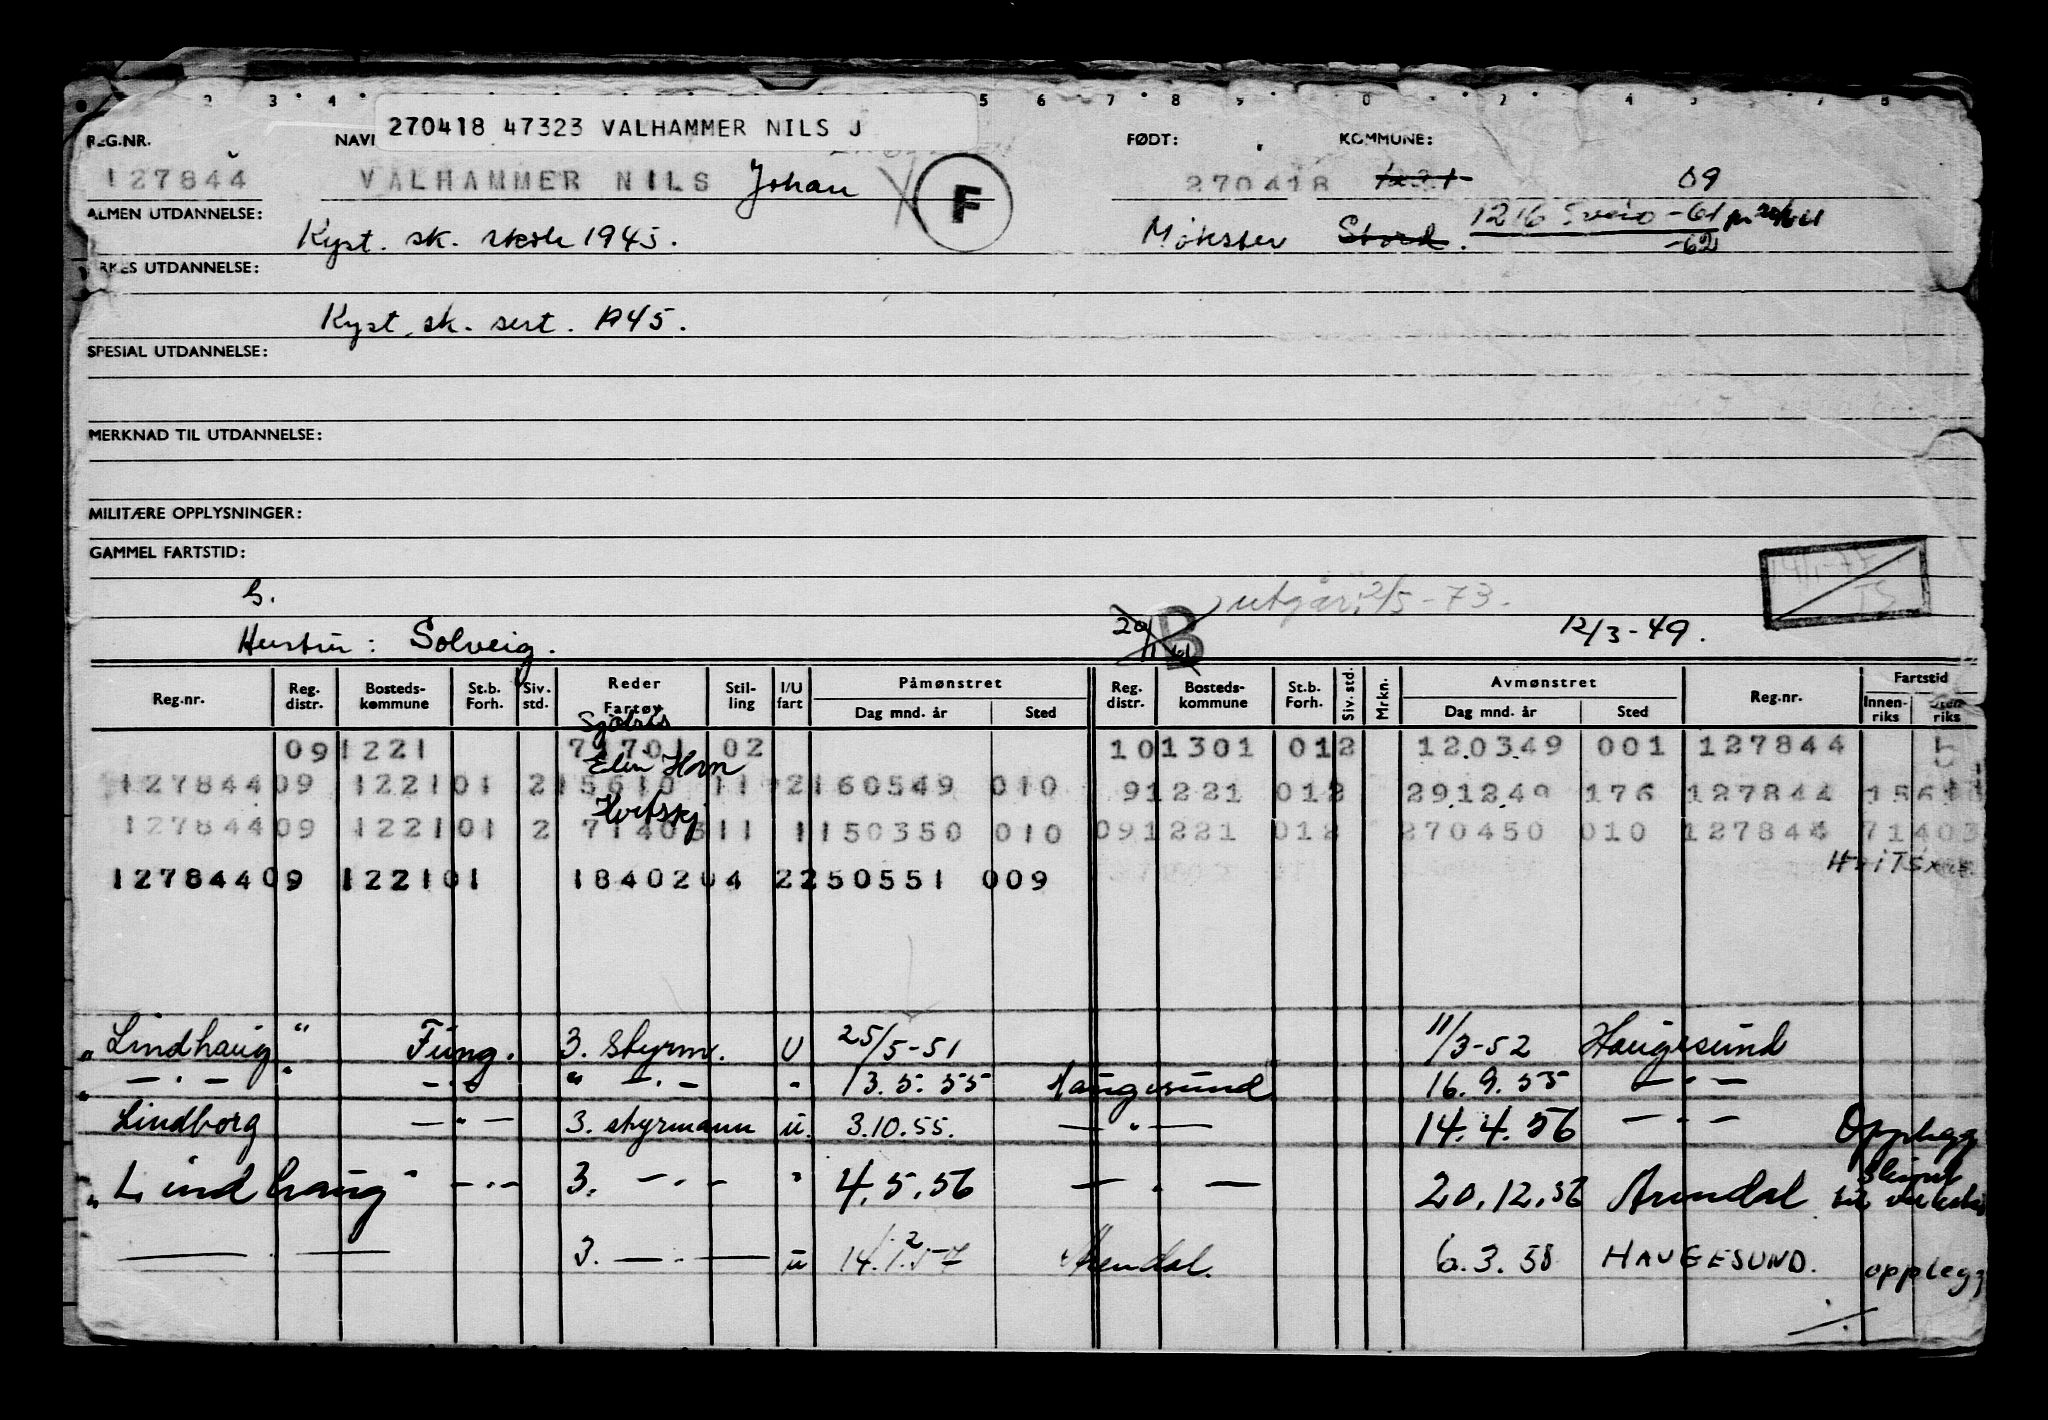 2 3 4 5 6 7 8 9 0 2 4 5 7 8
270418 47323 VALHAMMER NILS J
REG.NR. NAVN FØDT: KOMMUNE:
127844 VALHAMMER NILS Johan F 270418 09
ALMEN UTDANNELSE: Kyst. sk. skole 1945. Møkster Stord. 1216 Sveio -61
-62
YRKES UTDANNELSE:
Kyst. sk. sert. 1945.
SPESIAL UTDANNELSE:
MERKNAD TIL UTDANNELSE:
MILITÆRE OPPLYSNINGER:
GAMMEL FARTSTID:
G. utgår 2/5-73.
Hustru: Solveig. 20/11 61 B 12/3-49.
Reg.nr. Reg. distr. Bosteds- kommune St.b. Forh. Siv. std. Reder Fartøy Stil- ling I/U fart Påmønstret Dag mnd. år Sted Reg. distr. Bosteds- kommune St.b. Forh. Siv. std. Mrkn. Avmønstret Dag mnd. år Sted Reg.nr. Fartstid Innen- riks Uten- riks
09 1221 71701 02 10 1301 01 2 120349 001 127844
Elin Horn
127844 09 1221 01 2 15610 11 2 160549 010 9 1221 01 2 291249 176 127844
127844 09 1221 01 2 71403 11 1 150350 010 09 1221 01 2 270450 010 127844 71403
127844 09 1221 01 18402 04 2 250551 009
"Lindhaug" Fung. 3. styrm. U 25/5-51 11/3-52 Haugesund
" —.— " —.— " —.— " 13.5.55 Haugesund 16.9.55 —.—
Lindborg —.— 3. styrmann u. 3.10.55. —.— 14.4.56 —.— Opplegg
"Lindhaug" —.— 3. —.— " 4.5.56 —.— 20.12.56 Arendal
— — 3. —.— u 14.12.57 Arendal. 6.3.58 HAUGESUND. opplegg